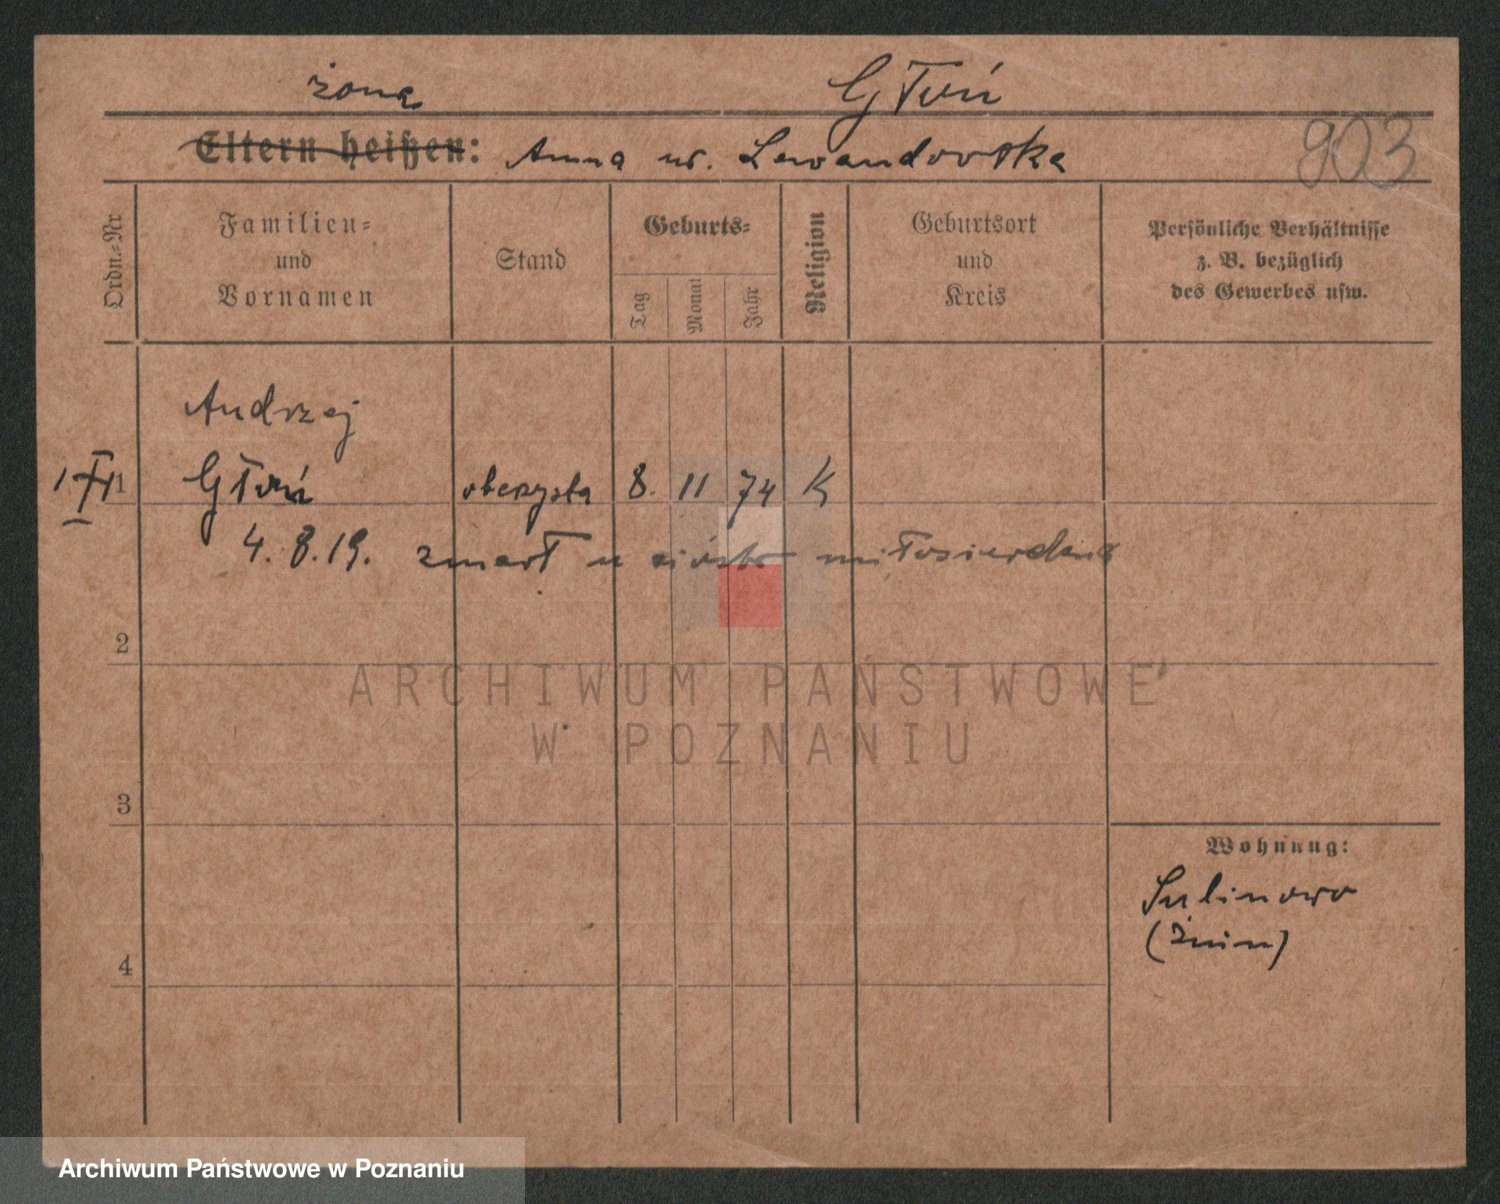 żona Głuń
Eltern heißen: Anna ur. Lewandowska
903
Ordn.-Nr
Familien-
und
Vornamen
Stand
Geburts-
Tag
Monat
Jahr
Religion
Geburtsort
und
Kreis
Persönliche Verhältnisse
z. B. bezüglich
des Gewerbes usw.
Andrzej
1 Głuń oberzysta 8. 11 74 K
4. 8. 19. zmarł u sióstr miłosierdzia
2
ARCHIWUM PAŃSTWOWE
W POZNANIU
3
Wohnung:
Sulinowo
(Żnin)
4
Archiwum Państwowe w Poznaniu